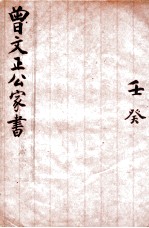 壬癸
曾文正公家書